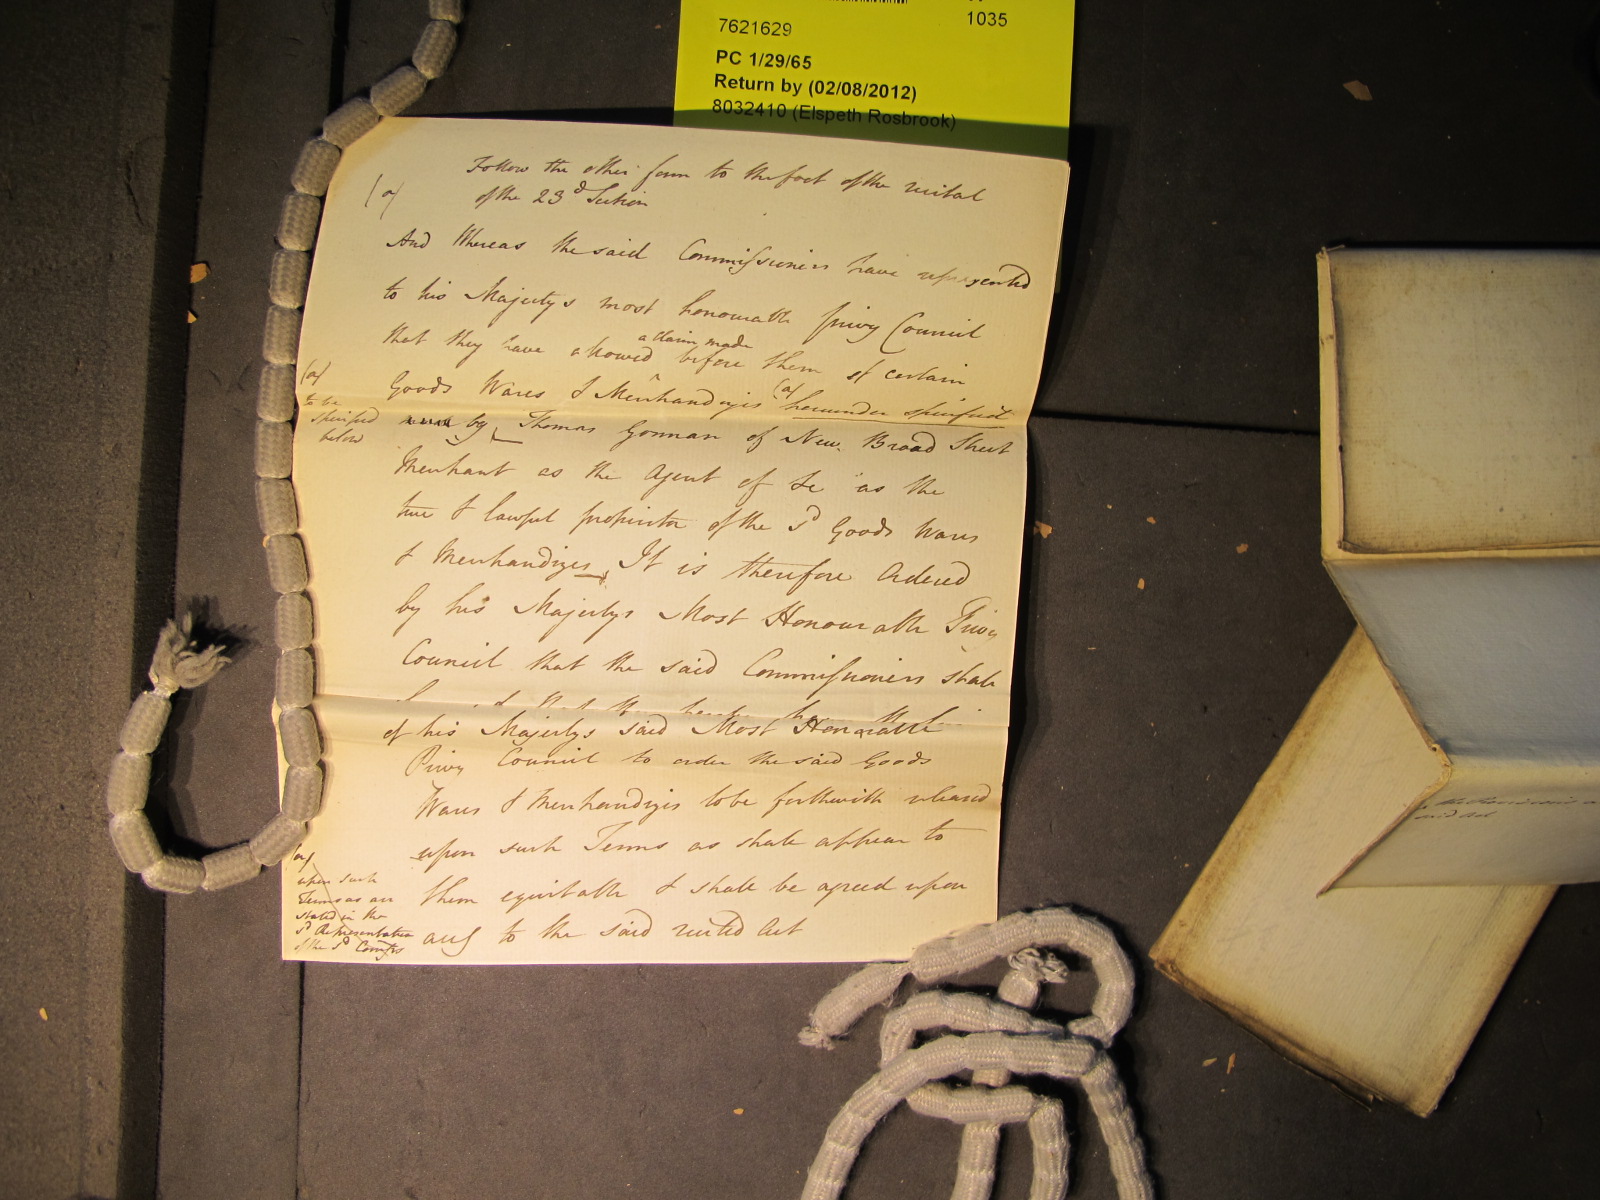 1035
7621629
PC 1/29/65
Return by (02/08/2012)
8032410 (Elspeth Rosbrook)
Follow the other form to the foot of the recital
(a)
of the 23d Section
And Whereas the said Commissioners have represented
to his Majestys most honourable privy Council
a Claim made
that they have allowed before them of certain
(a)
Goods Wares & Merchandizes (a) hereunder specified
to be
specified
below
by Thomas Gorman of New Broad Street
Merchant as the Agent of &c as the
true & lawful proprietor of the sd Goods Wares
& Merchandizes It is therefore Ordered
by his Majestys Most Honourable Privy
Council that the said Commissioners shall
of his Majestys said Most Honorable
Privy Council to order the said Goods
Wares & Merchandizes to be forthwith released
upon such Terms as shall appear to
(a)
upon such
Terms as are
stated in the
sd Representation
of the sd Comrs
them equitable & shall be agreed upon
to the said recited Act
said Act